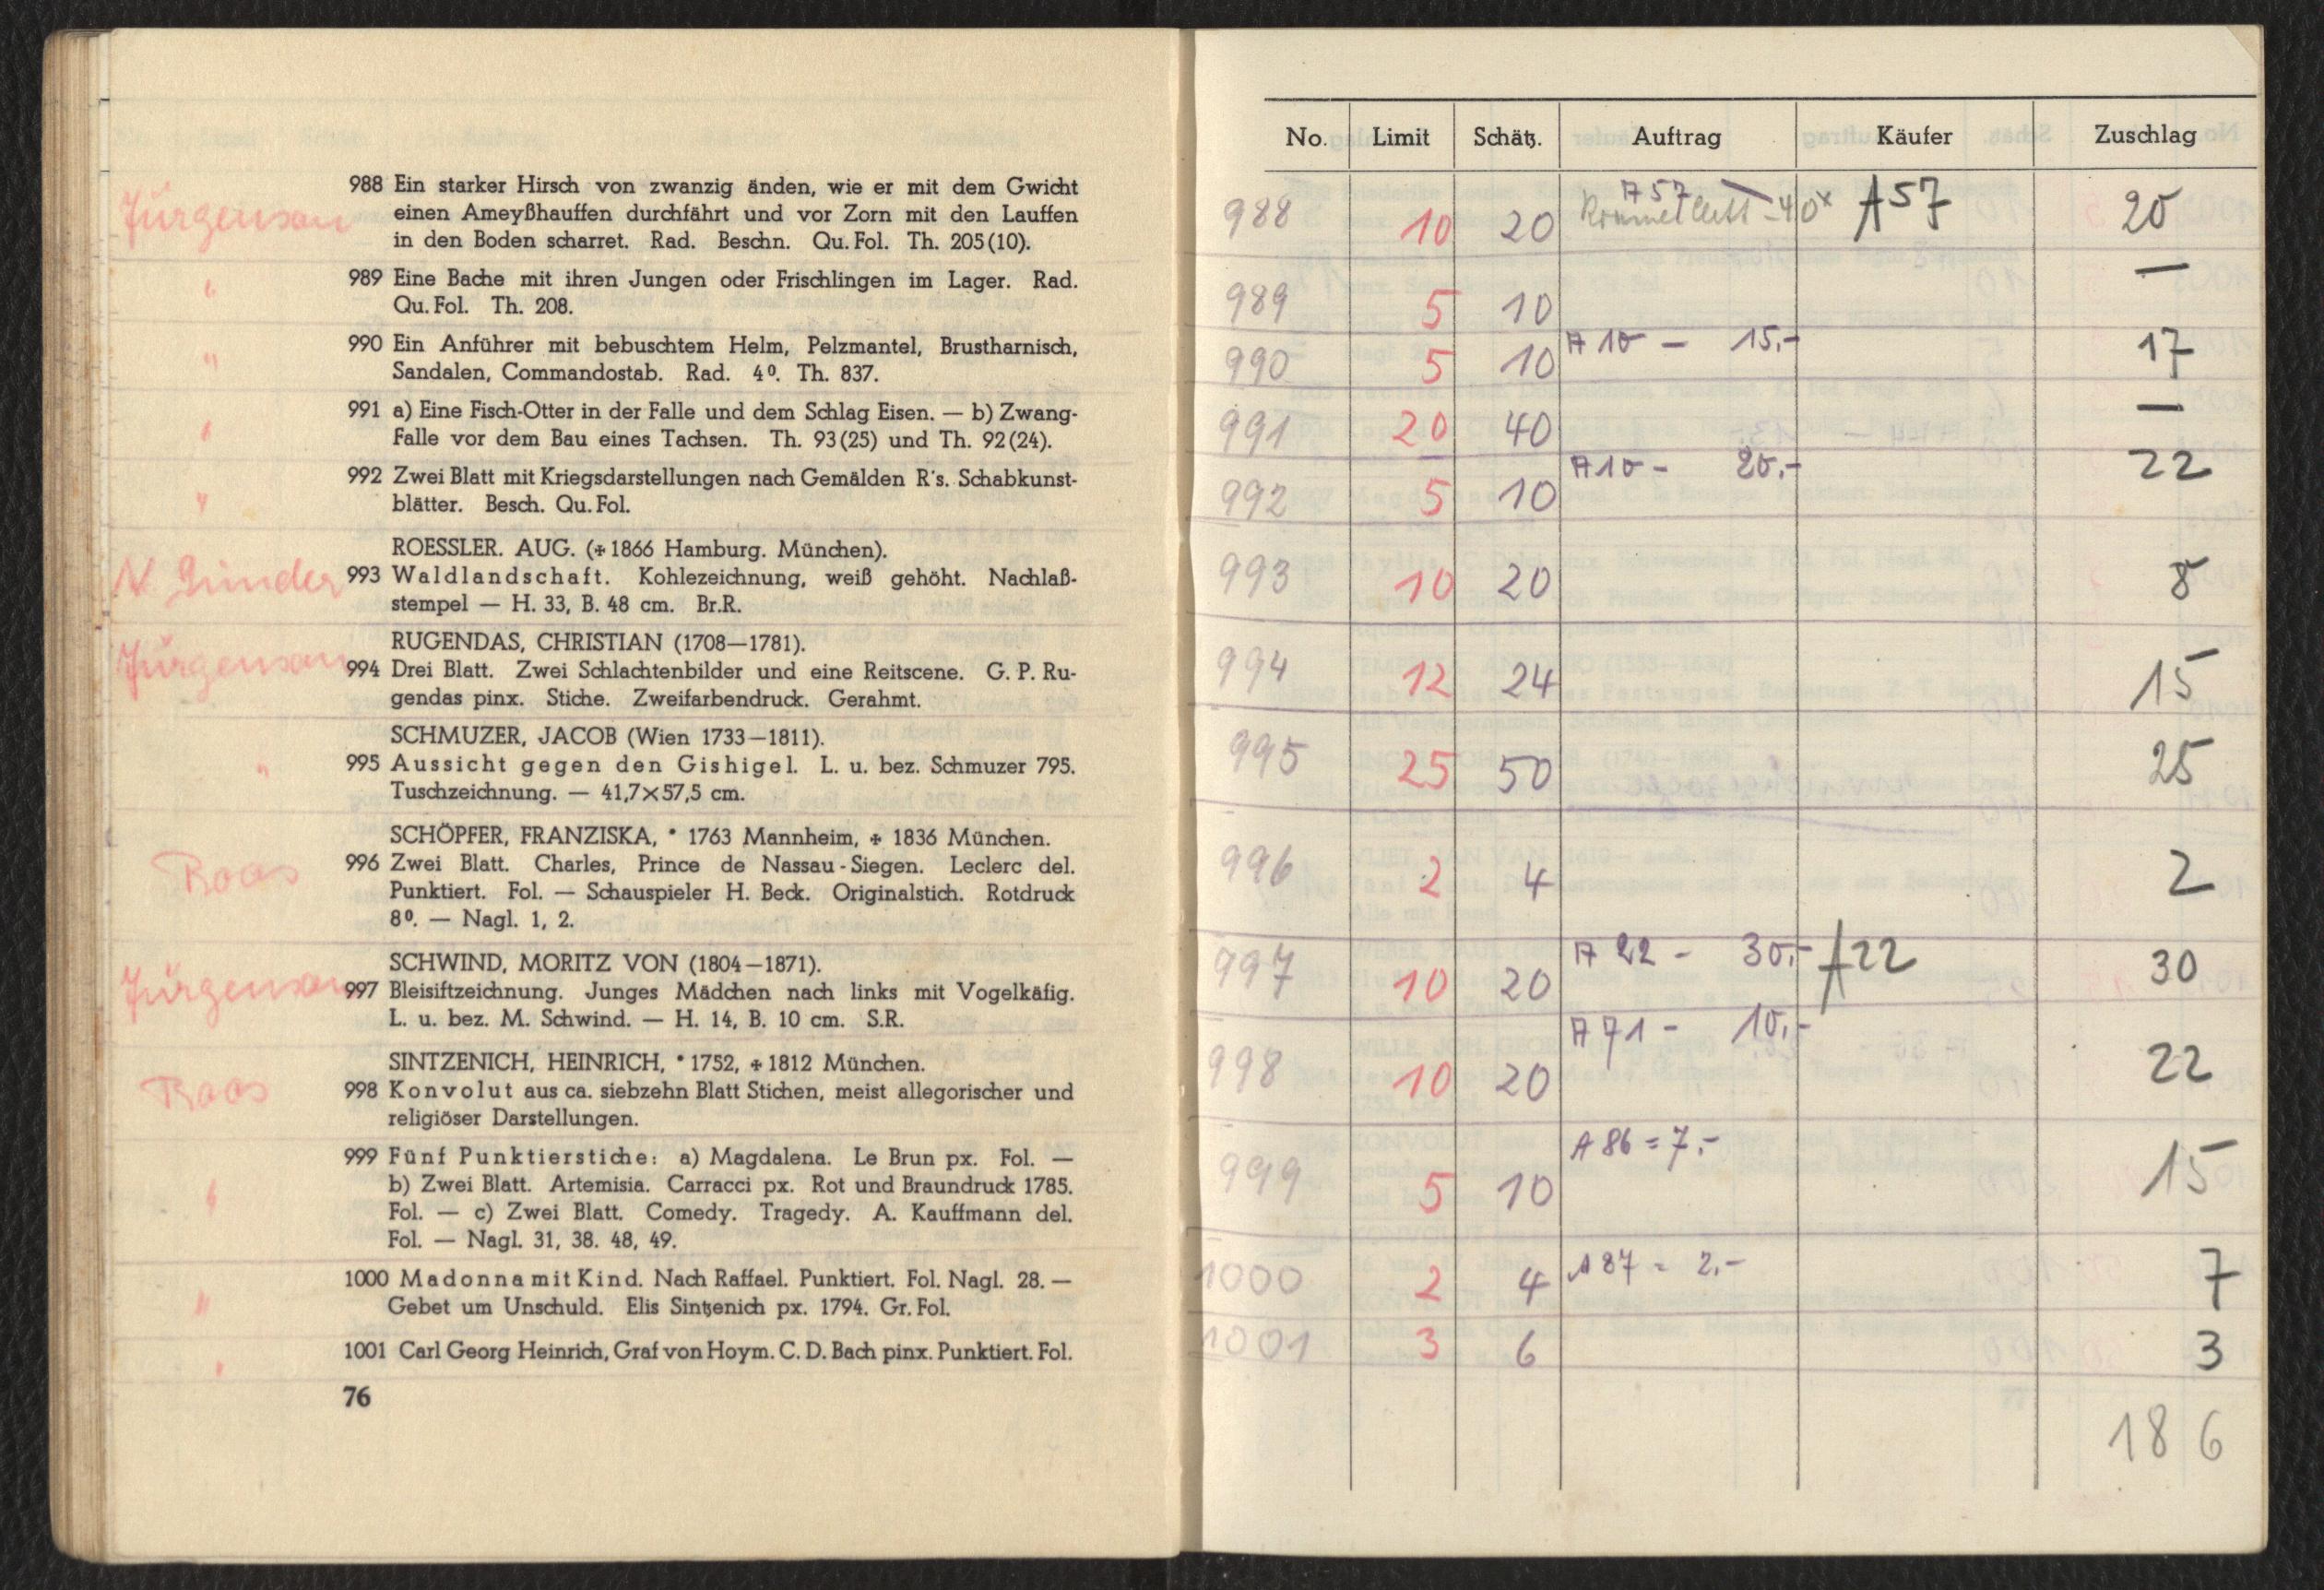 Jürgenson
988 Ein starker Hirsch von zwanzig änden, wie er mit dem Gwicht
einen Ameyßhauffen durchfährt und vor Zorn mit den Lauffen
in den Boden scharret. Rad. Beschn. Qu. Fol. Th. 205 (10).
"
989 Eine Bache mit ihren Jungen oder Frischlingen im Lager. Rad.
Qu. Fol. Th. 208.
"
990 Ein Anführer mit bebuschtem Helm, Pelzmantel, Brustharnisch,
Sandalen, Commandostab. Rad. 4⁰. Th. 837.
"
991 a) Eine Fisch-Otter in der Falle und dem Schlag Eisen. — b) Zwang-
Falle vor dem Bau eines Tachsen. Th. 93 (25) und Th. 92 (24).
"
992 Zwei Blatt mit Kriegsdarstellungen nach Gemälden R's. Schabkunst-
blätter. Besch. Qu. Fol.
ROESSLER. AUG. (✠ 1866 Hamburg. München).
993 Waldlandschaft. Kohlezeichnung, weiß gehöht. Nachlaß-
stempel — H. 33, B. 48 cm. Br.R.
RUGENDAS, CHRISTIAN (1708—1781).
Jürgenson
994 Drei Blatt. Zwei Schlachtenbilder und eine Reitscene. G. P. Ru-
gendas pinx. Stiche. Zweifarbendruck. Gerahmt.
SCHMUZER, JACOB (Wien 1733—1811).
"
995 Aussicht gegen den Gishigel. L. u. bez. Schmuzer 795.
Tuschzeichnung. — 41,7×57,5 cm.
SCHÖPFER, FRANZISKA, * 1763 Mannheim, ✠ 1836 München.
Roas
996 Zwei Blatt. Charles, Prince de Nassau-Siegen. Leclerc del.
Punktiert. Fol. — Schauspieler H. Beck. Originalstich. Rotdruck
8⁰. — Nagl. 1, 2.
SCHWIND, MORITZ VON (1804—1871).
Jürgenson
997 Bleisiftzeichnung. Junges Mädchen nach links mit Vogelkäfig.
L. u. bez. M. Schwind. — H. 14, B. 10 cm. S.R.
SINTZENICH, HEINRICH, * 1752, ✠ 1812 München.
Roas
998 Konvolut aus ca. siebzehn Blatt Stichen, meist allegorischer und
religiöser Darstellungen.
999 Fünf Punktierstiche: a) Magdalena. Le Brun px. Fol. —
b) Zwei Blatt. Artemisia. Carracci px. Rot und Braundruck 1785.
"
Fol. — c) Zwei Blatt. Comedy. Tragedy. A. Kauffmann del.
Fol. — Nagl. 31, 38. 48, 49.
1000 Madonna mit Kind. Nach Raffael. Punktiert. Fol. Nagl. 28. —
"
Gebet um Unschuld. Elis Sintzenich px. 1794. Gr. Fol.
"
1001 Carl Georg Heinrich, Graf von Hoym. C. D. Bach pinx. Punktiert. Fol.
76
No. Limit Schätz. Auftrag Käufer Zuschlag
988 10 20 A 57 – 40 x A 57 20
989 5 10 —
990 5 10 A 10 – 15.- 17
991 20 40 —
992 5 10 A 10 – 20.- 22
993 10 20 8
994 12 24 15
995 25 50 25
996 2 4 2
997 10 20 A 22 – 30.- A 22 30
998 10 20 A 71 – 10.- 22
999 5 10 A 86 = 7.- 15
1000 2 4 A 87 = 2.- 7
1001 3 6 3
186